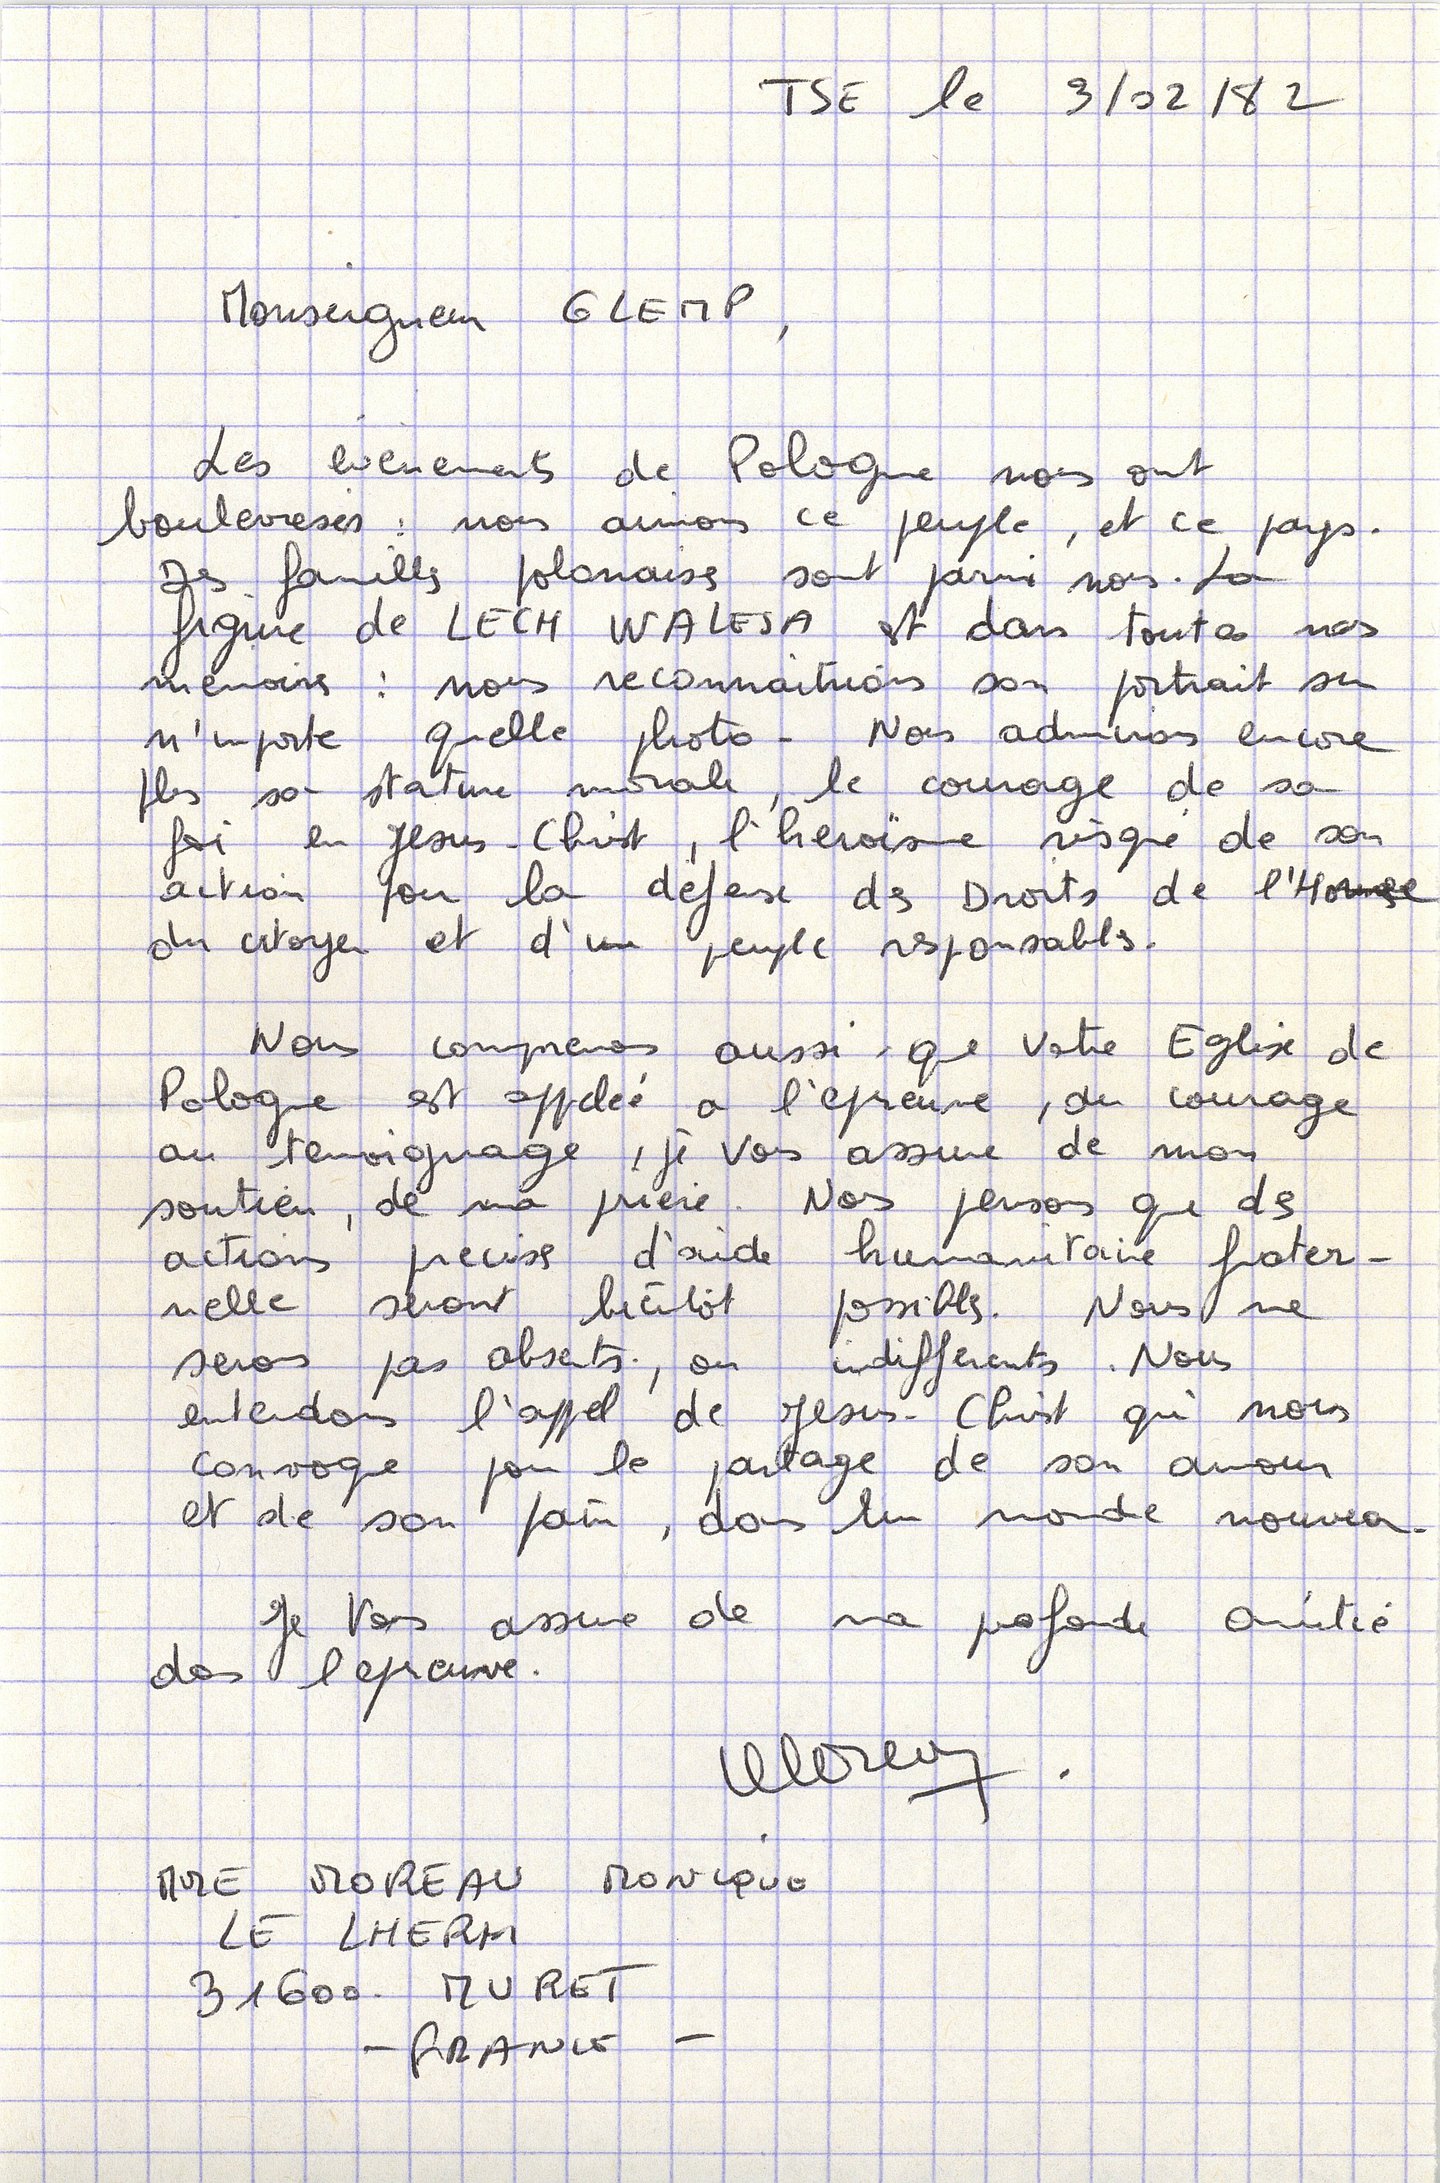 TSE le 3/02/82
Monseigneur GLEMP,
Les évènements de Pologne nous ont
bouleversés : nous aimons ce peuple, et ce pays.
Des familles polonaises sont parmi nous. La
figure de LECH WALESA est dans toutes nos
memoires : nous reconnaitrions son portrait sur
n'importe quelle photo - Nous admirons encore
plus sa stature morale, le courage de sa
foi en Jesus-Christ, l'heroïsme risqué de son
action pour la défense des Droits de l'Homme
du citoyen et d'un peuple responsables.
Nous comprenons aussi que votre Eglise de
Pologne est appelée a l'épreuve, du courage
au temoignage, je vous assure de mon
soutien, de ma prière. Nous pensons que des
actions precises d'aide humanitaire frater-
nelle seront bientôt possibles. Nous ne
serons pas absents, ou indifferents. Nous
entendons l'appel de Jesus-Christ qui nous
convoque pour le partage de son amour
et de son pain, dans un monde nouveau.
Je vous assure de ma profonde amitié
dans l'epreuve.
Moreau.
MME MOREAU MONIQUE
LE LHERM
31600. MURET
- FRANCE -